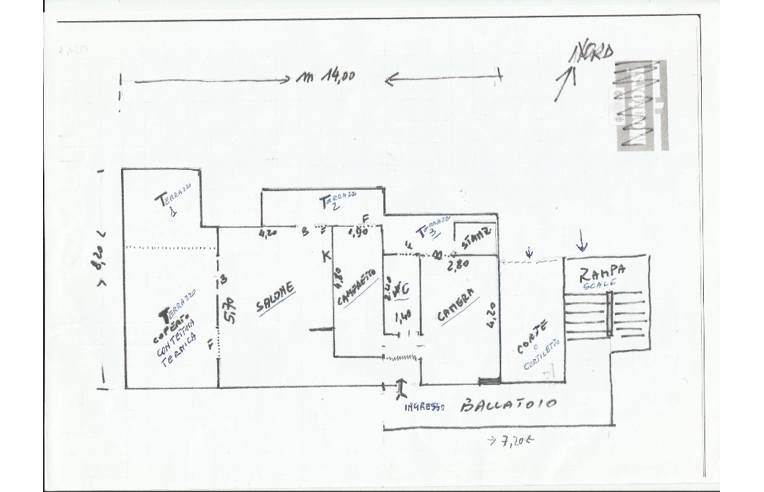 NORD
m 14,00
8,20
TERRAZZO
1
TERRAZZO
2
TERRAZZO
3
STANZ
4,20
B
F
F
1,90
F
B
2,80
K
SALONE
5,70
B
F
4,80
CAMERETTO
2,40
WC
1,40
CAMERA
4,20
TERRAZZO
COPERTO
CON TETTOIA
TERMICA
CORTE
O
CORTILETTO
RAMPA
SCALE
INGRESSO
BALLATOIO
7,20